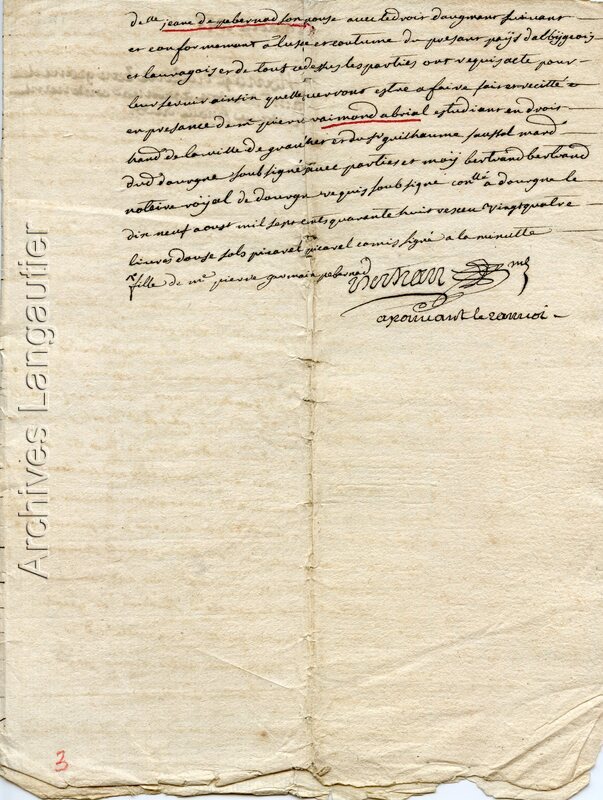 de lle jeane de pebernad son pouse avec le droit daugment suivant
et conformemant à luse et coutume du presant païs d'albigeois
et lauragois et de tout ce dessus les parties ont requis acte pour
leur servir ainsin quelles verront estre a faire fait et recitté
en presance de mr pierre raimond abrial estudiant en droit
hant de la ville de graulhet et du sr guilhaume mard
dud dourgne soubsigné avec parties et moÿ bertrand bertrand
notaire roÿal de dourgne requis soubsigné a dourgne le
dix neuf aoust mil sept cens quarante huit vingt quatre
livres douse sols picarel picarel comis signé a la minutte
fille de mr pierre germain pebernad
Bertrand
Archives Langautier
3